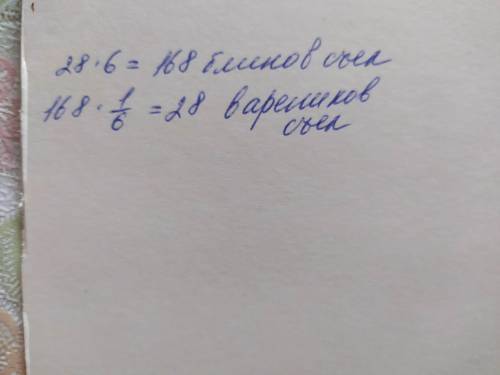 28·6 = 168 блинов съел
168 · 1/6 = 28 вареников
съел